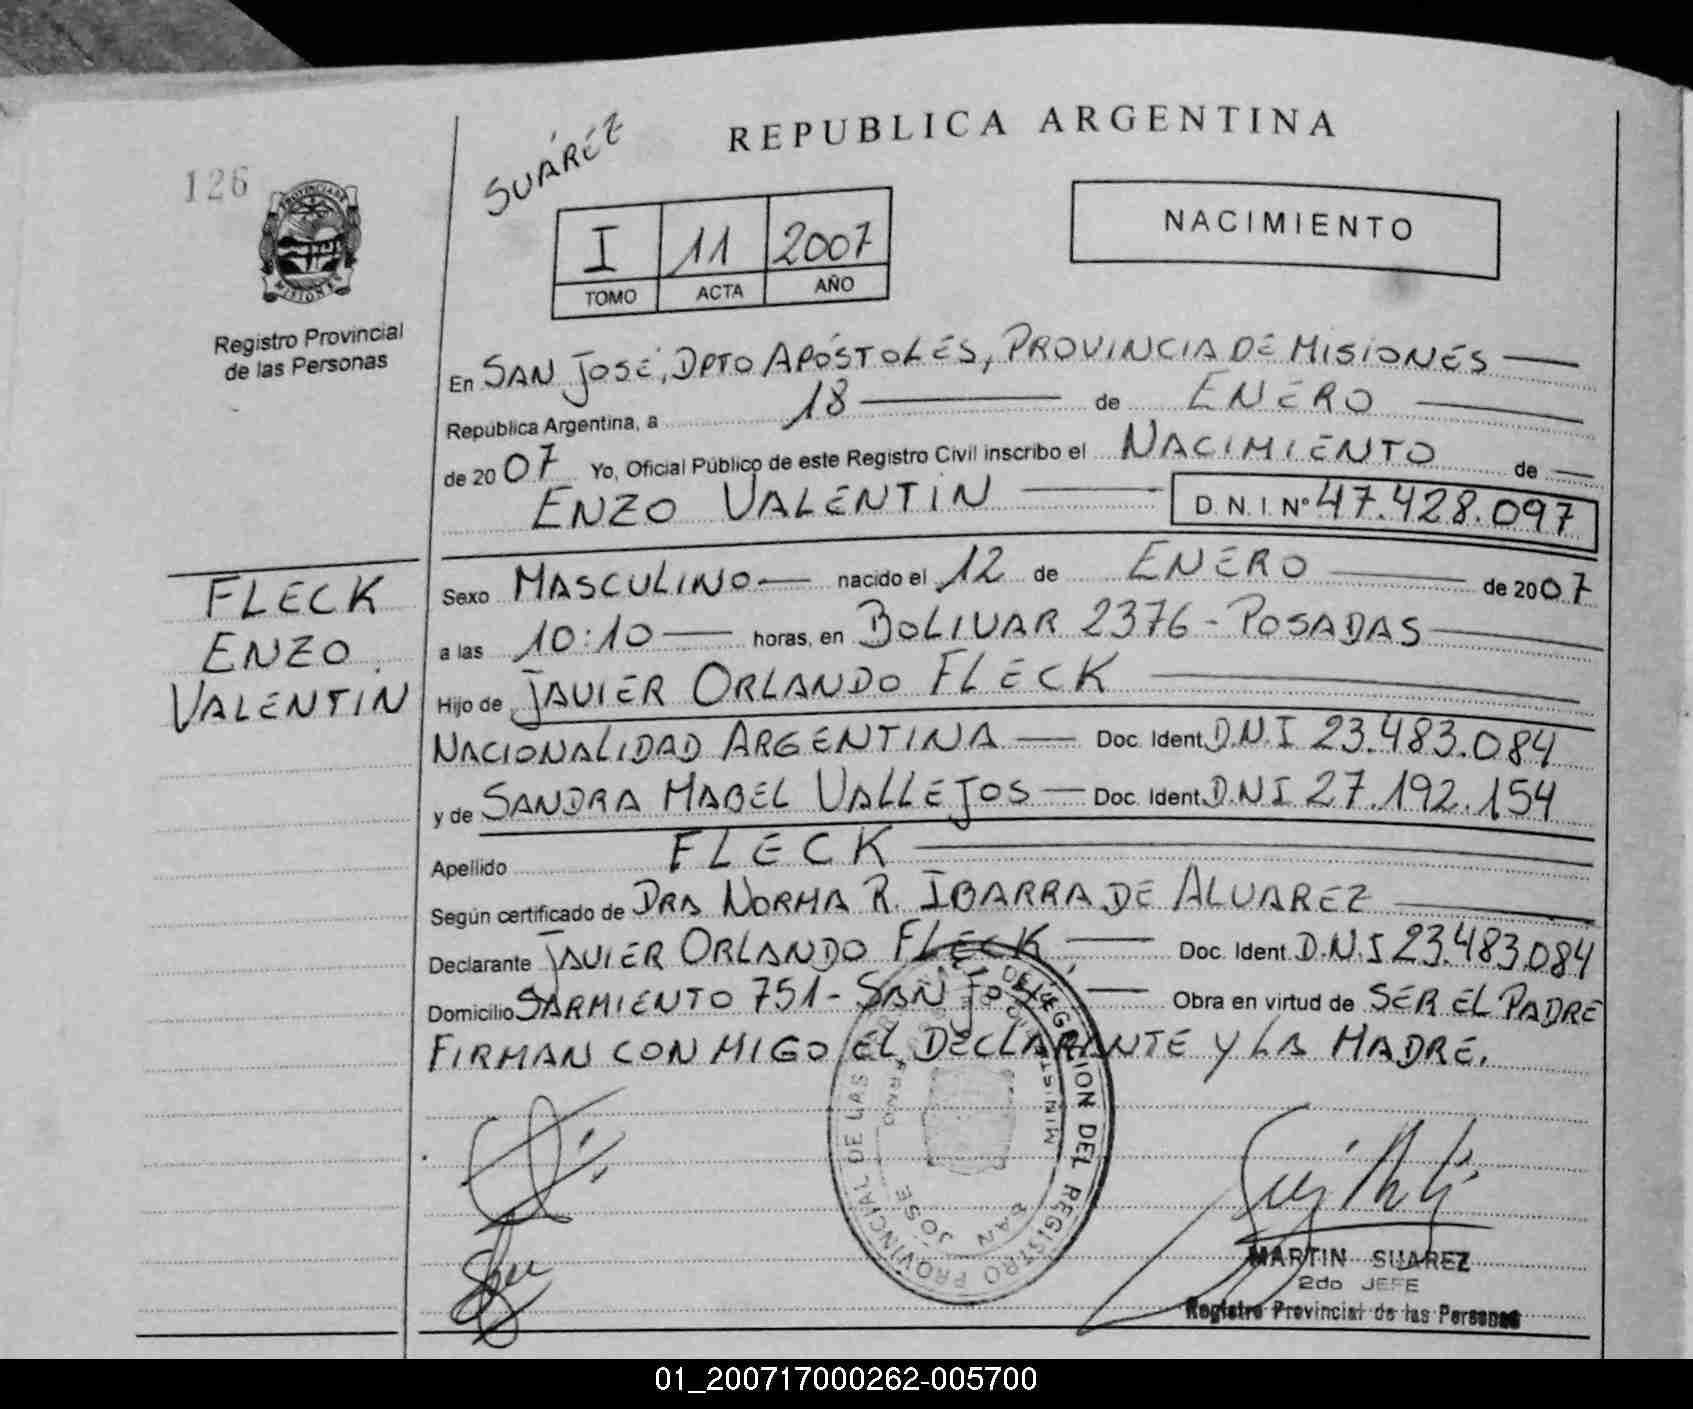 REPUBLICA ARGENTINA
SUÁREZ
126
PROVINCIA DE
MISIONES
Registro Provincial
de las Personas
NACIMIENTO
I 11 2007
TOMO ACTA AÑO
En SAN JOSÉ, DPTO APÓSTOLES, PROVINCIA DE MISIONES
República Argentina, a 18 de ENERO
de 2007 Yo, Oficial Público de este Registro Civil inscribo el NACIMIENTO de
ENZO VALENTIN D.N.I. Nº 47.428.097
FLECK
ENZO
VALENTIN
Sexo MASCULINO nacido el 12 de ENERO de 2007
a las 10:10 horas, en BOLIVAR 2376 - POSADAS
Hijo de JAVIER ORLANDO FLECK
NACIONALIDAD ARGENTINA Doc. Ident. D.N.I 23.483.084
y de SANDRA MABEL VALLEJOS Doc. Ident. D.N.I 27.192.154
Apellido FLECK
Según certificado de DRA NORMA R. IBARRA DE ALVAREZ
Declarante JAVIER ORLANDO FLECK, Doc. Ident. D.N.I 23.483.084
Domicilio SARMIENTO 751 - SAN JOSÉ Obra en virtud de SER EL PADRE
FIRMAN CON MIGO EL DECLARANTE Y LA MADRE.
DELEGACION DEL REGISTRO PROVINCIAL DE LAS
MINISTERIO DE
SAN JOSE
MARTIN SUAREZ
2do JEFE
Registro Provincial de las Personas
01_200717000262-005700